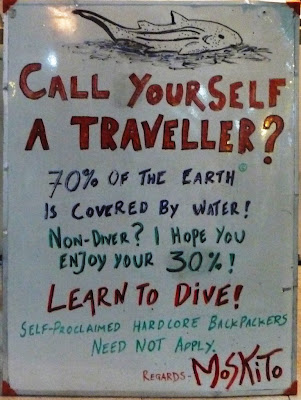 CALL YOURSELF
A TRAVELLER?
70% OF THE EARTH ©
IS COVERED BY WATER!
NON-DIVER? I HOPE YOU
ENJOY YOUR 30%!
LEARN TO DIVE!
SELF-PROCLAIMED HARDCORE BACKPACKERS
NEED NOT APPLY.
REGARDS - MOSKITO